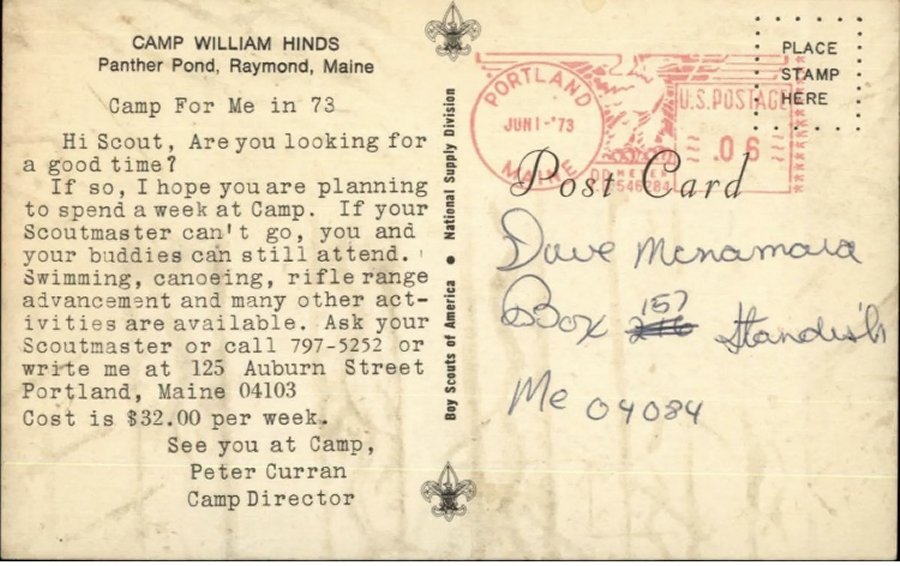 CAMP WILLIAM HINDS
Panther Pond, Raymond, Maine
Camp For Me in 73
Hi Scout, Are you looking for
a good time?
If so, I hope you are planning
to spend a week at Camp. If your
Scoutmaster can't go, you and
your buddies can still attend.
Swimming, canoeing, rifle range
advancement and many other act-
ivities are available. Ask your
Scoutmaster or call 797-5252 or
write me at 125 Auburn Street
Portland, Maine 04103
Cost is $32.00 per week.
See you at Camp,
Peter Curran
Camp Director
Boy Scouts of America • National Supply Division
PORTLAND
JUN 1-'73
MAINE
U.S. POSTAGE
.06
METER
546284
PLACE
STAMP
HERE
Post Card
Dave Mcnamara
Box 157 Standish
Me 04084